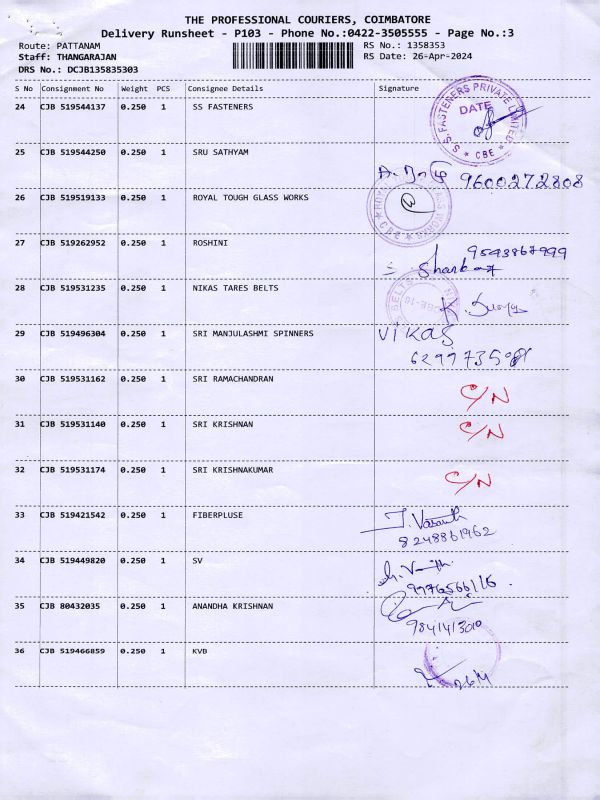 THE PROFESSIONAL COURIERS, COIMBATORE
Delivery Runsheet - P103 - Phone No.:0422-3505555 - Page No.:3
Route: PATTANAM RS No.: 1358353
Staff: THANGARAJAN RS Date: 26-Apr-2024
DRS No.: DCJB135835303
S No Consignment No Weight PCS Consignee Details Signature
24 CJB 519544137 0.250 1 SS FASTENERS
S.S. FASTENERS PRIVATE LIMITED
DATE
CBE
25 CJB 519544250 0.250 1 SRU SATHYAM
9600272808
26 CJB 519519133 0.250 1 ROYAL TOUGH GLASS WORKS
27 CJB 519262952 0.250 1 ROSHINI
9543867999
28 CJB 519531235 0.250 1 NIKAS TARES BELTS
BELTS
29 CJB 519496304 0.250 1 SRI MANJULASHMI SPINNERS VIKAS
30 CJB 519531162 0.250 1 SRI RAMACHANDRAN C/N
31 CJB 519531140 0.250 1 SRI KRISHNAN C/N
32 CJB 519531174 0.250 1 SRI KRISHNAKUMAR C/N
33 CJB 519421542 0.250 1 FIBERPLUSE J. Vasanth
8248861962
34 CJB 519449820 0.250 1 SV
9976566116
35 CJB 80432035 0.250 1 ANANDHA KRISHNAN
9841413010
36 CJB 519466859 0.250 1 KVB
26/4